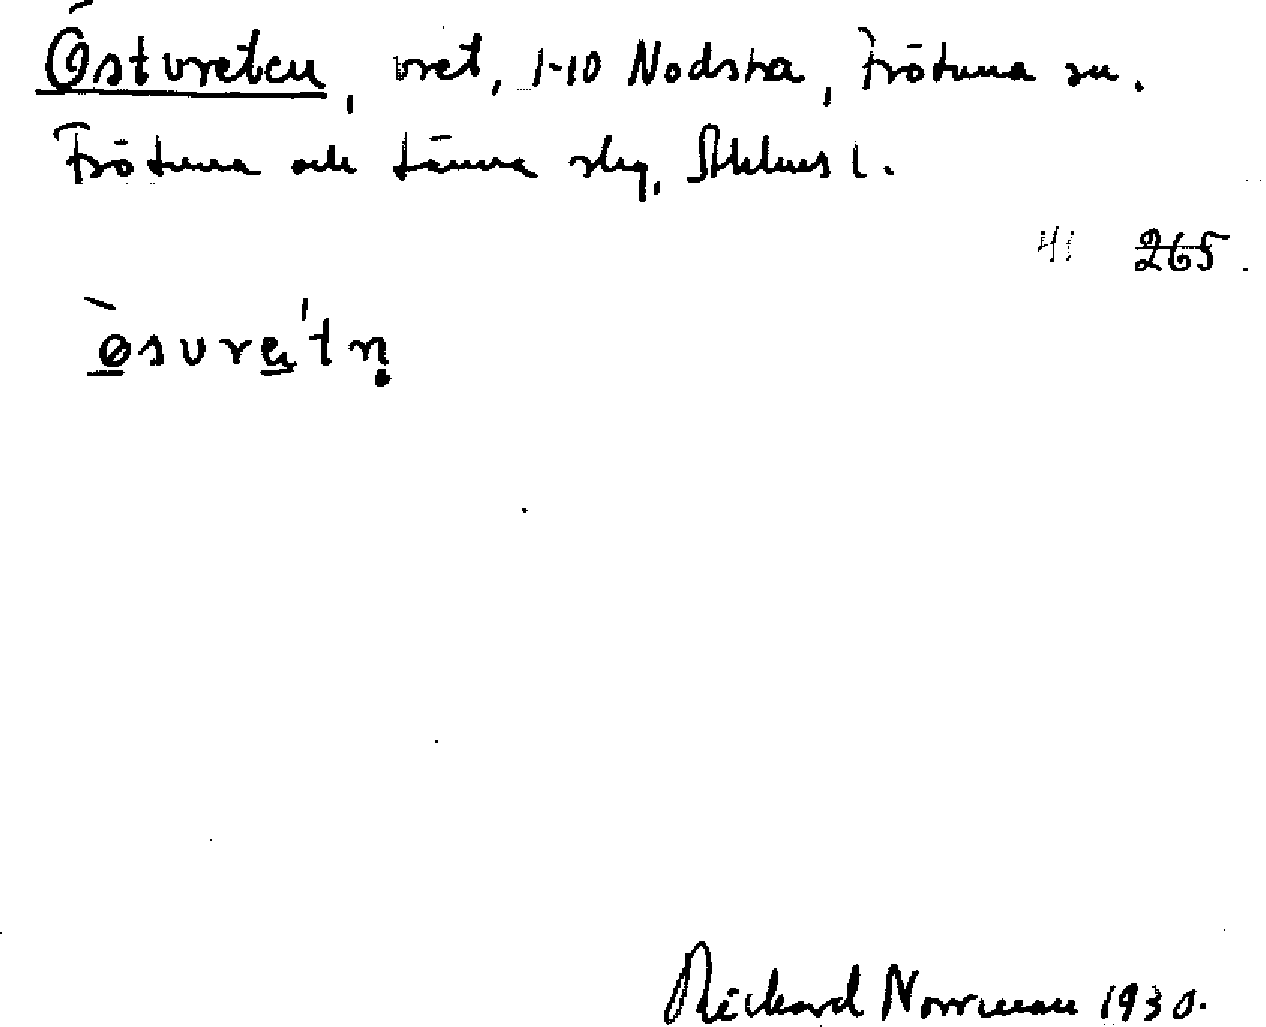 Östvreten, vret, 1-10 Nodsta, Frötuna sn.
Frötuna och Länna skg, Sthlms l.
41 265.
Richard Norrman 1930.